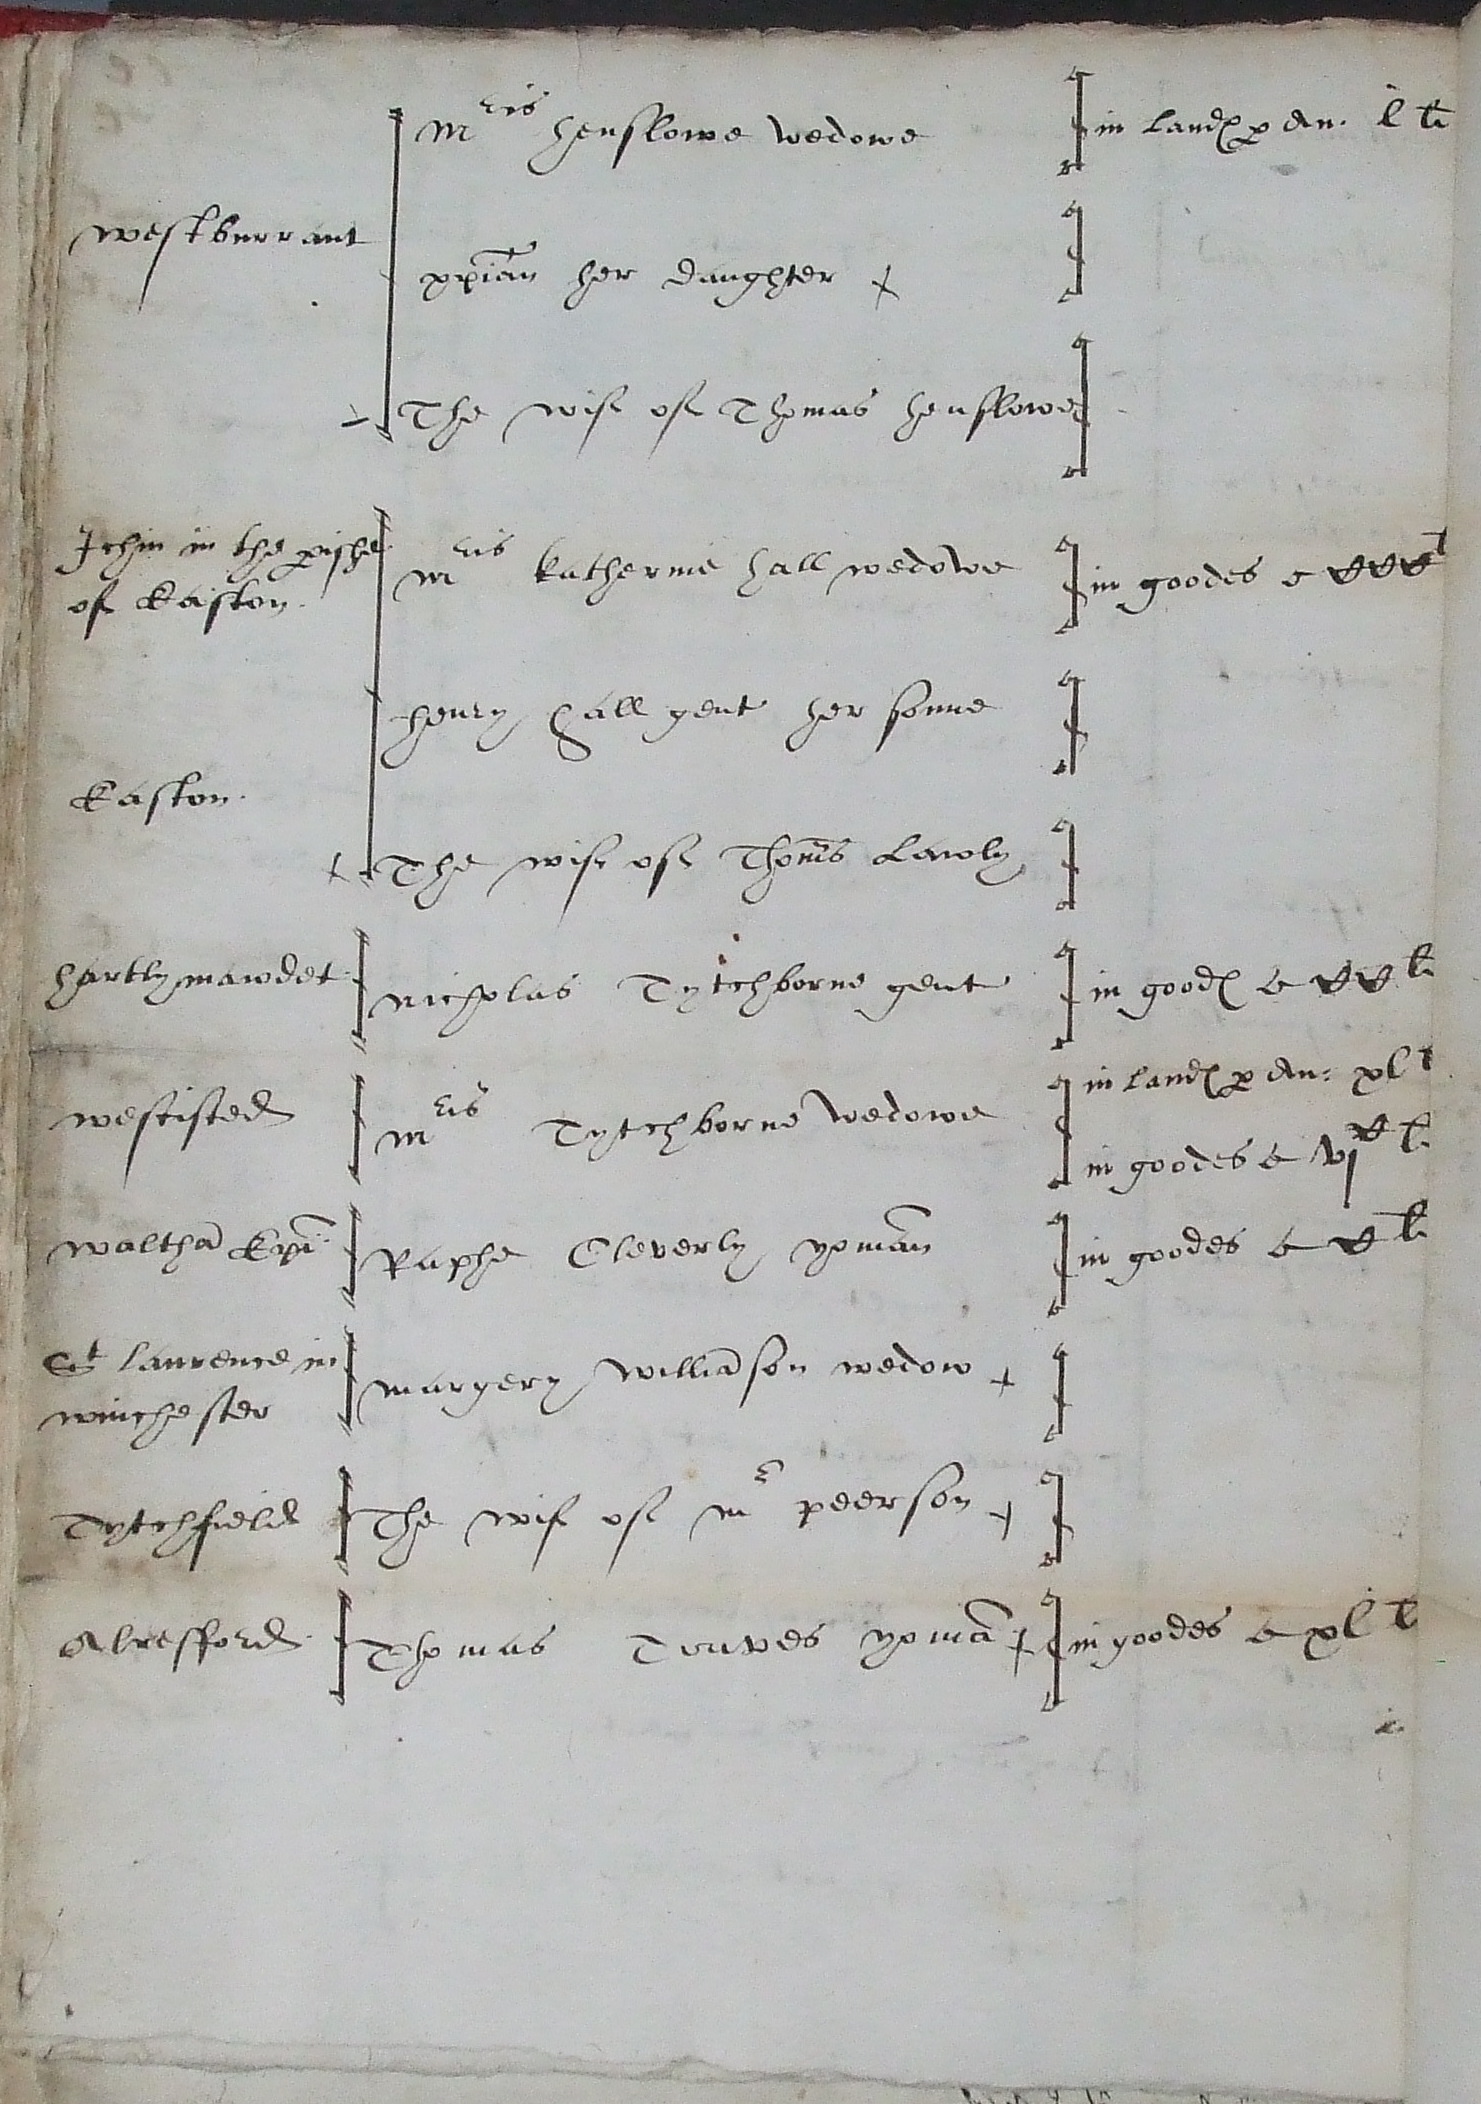 Mris henslowe wedowe in Land p An. l li
westburrant
xpian her daughter +
+ The wife of Thomas henslowe
Ichin in the pishe
of Easton.
Mris Katherine hall wedowe in goodes C xxx l
henry hall gent her sonne
Easton.
+ The wife of Thoms
hartly mawdet Nicholas Tytchborne gent in good C xx l.
westisted Mris Tytchborne wedowe in Land p An: xl l
in goodes C vj xx l.
Walthā Epi Raphe Cleverly yoman in goodes C x l.
St Laurence in
winchester
margery Williāson wedow +
Tytchfield The wife of Mr peerson +
Alresfford Thomas yomā + in goodes C xl l